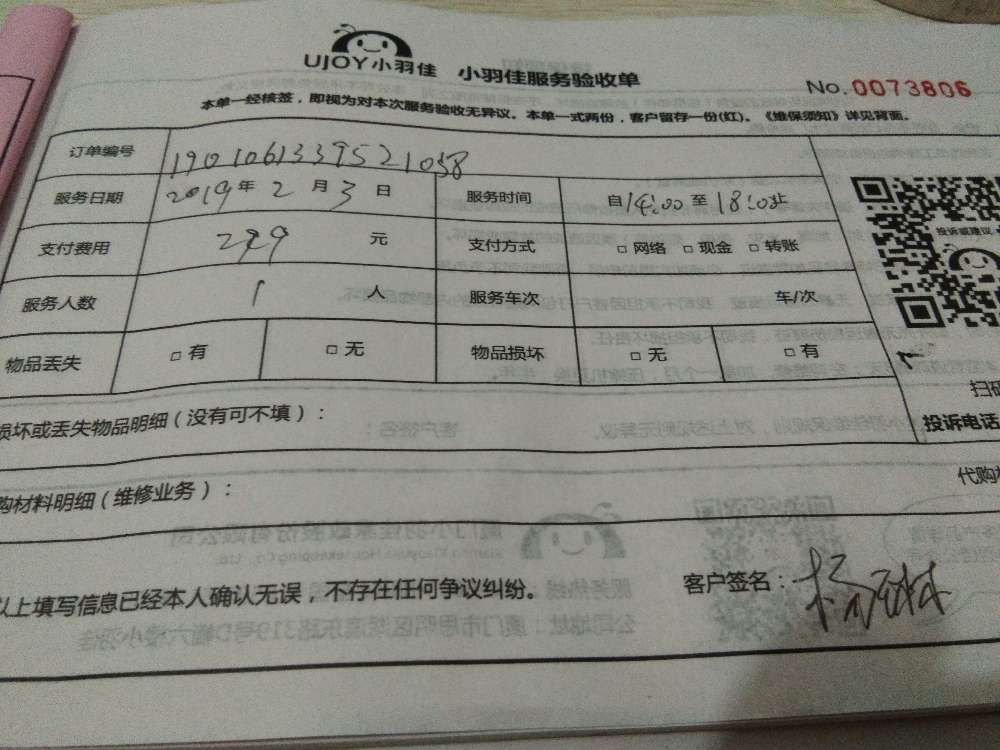 UJOY小羽佳 小羽佳服务验收单
No.0073806
本单一经核签，即视为对本次服务验收无异议。本单一式两份，客户留存一份(红)。《维保须知》详见背面。
订单编号 1901061339521058
服务日期 2019年2月3日 服务时间 自14:00至18:00止
支付费用 299元 支付方式 □网络 □现金 □转账
服务人数 1人 服务车次 车/次
物品丢失 □有 □无 物品损坏 □无 □有
投诉或建议
扫码
投诉电话
损坏或丢失物品明细（没有可不填）：
购材料明细（维修业务）： 代购
以上填写信息已经本人确认无误，不存在任何争议纠纷。 客户签名：